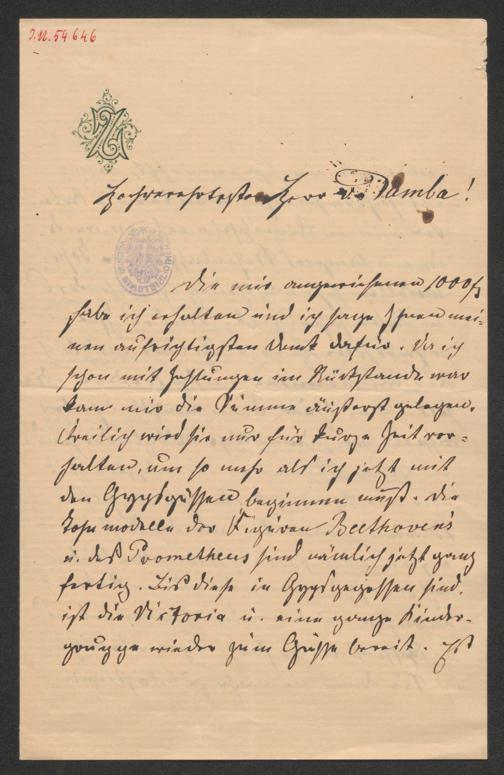 I.N. 54646
Hochverehrtester Herr v. Dumba!
Die mir angewiesenen 1000 fl
habe ich erhalten und ich sage Ihnen mei-
nen aufrichtigsten Dank dafür. Da ich
schon mit Zahlungen im Rückstande war
kam mir die Summe äußerst gelegen.
Freilich wird sie nur für kurze Zeit vor-
halten, um so mehr als ich jetzt mit
den Gypsgüssen beginnen muß. Die
Tonmodelle der Figuren Beethoven's
u. des Prometheus sind nämlich jetzt ganz
fertig. Bis diese in Gyps gegossen sind,
ist die Victoria u. eine ganze Kinder-
gruppe wieder zum Gusse bereit. Es